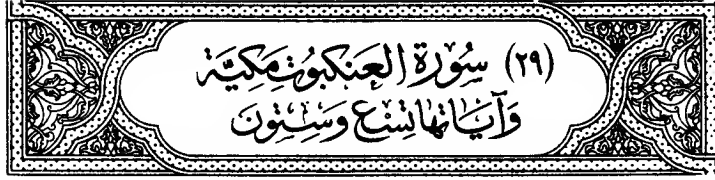 (٢٩) سُورَةُ العَنكبُوتِ مَكيَّة
وَآيَاتهَا تِسْع وَسِتّونَ